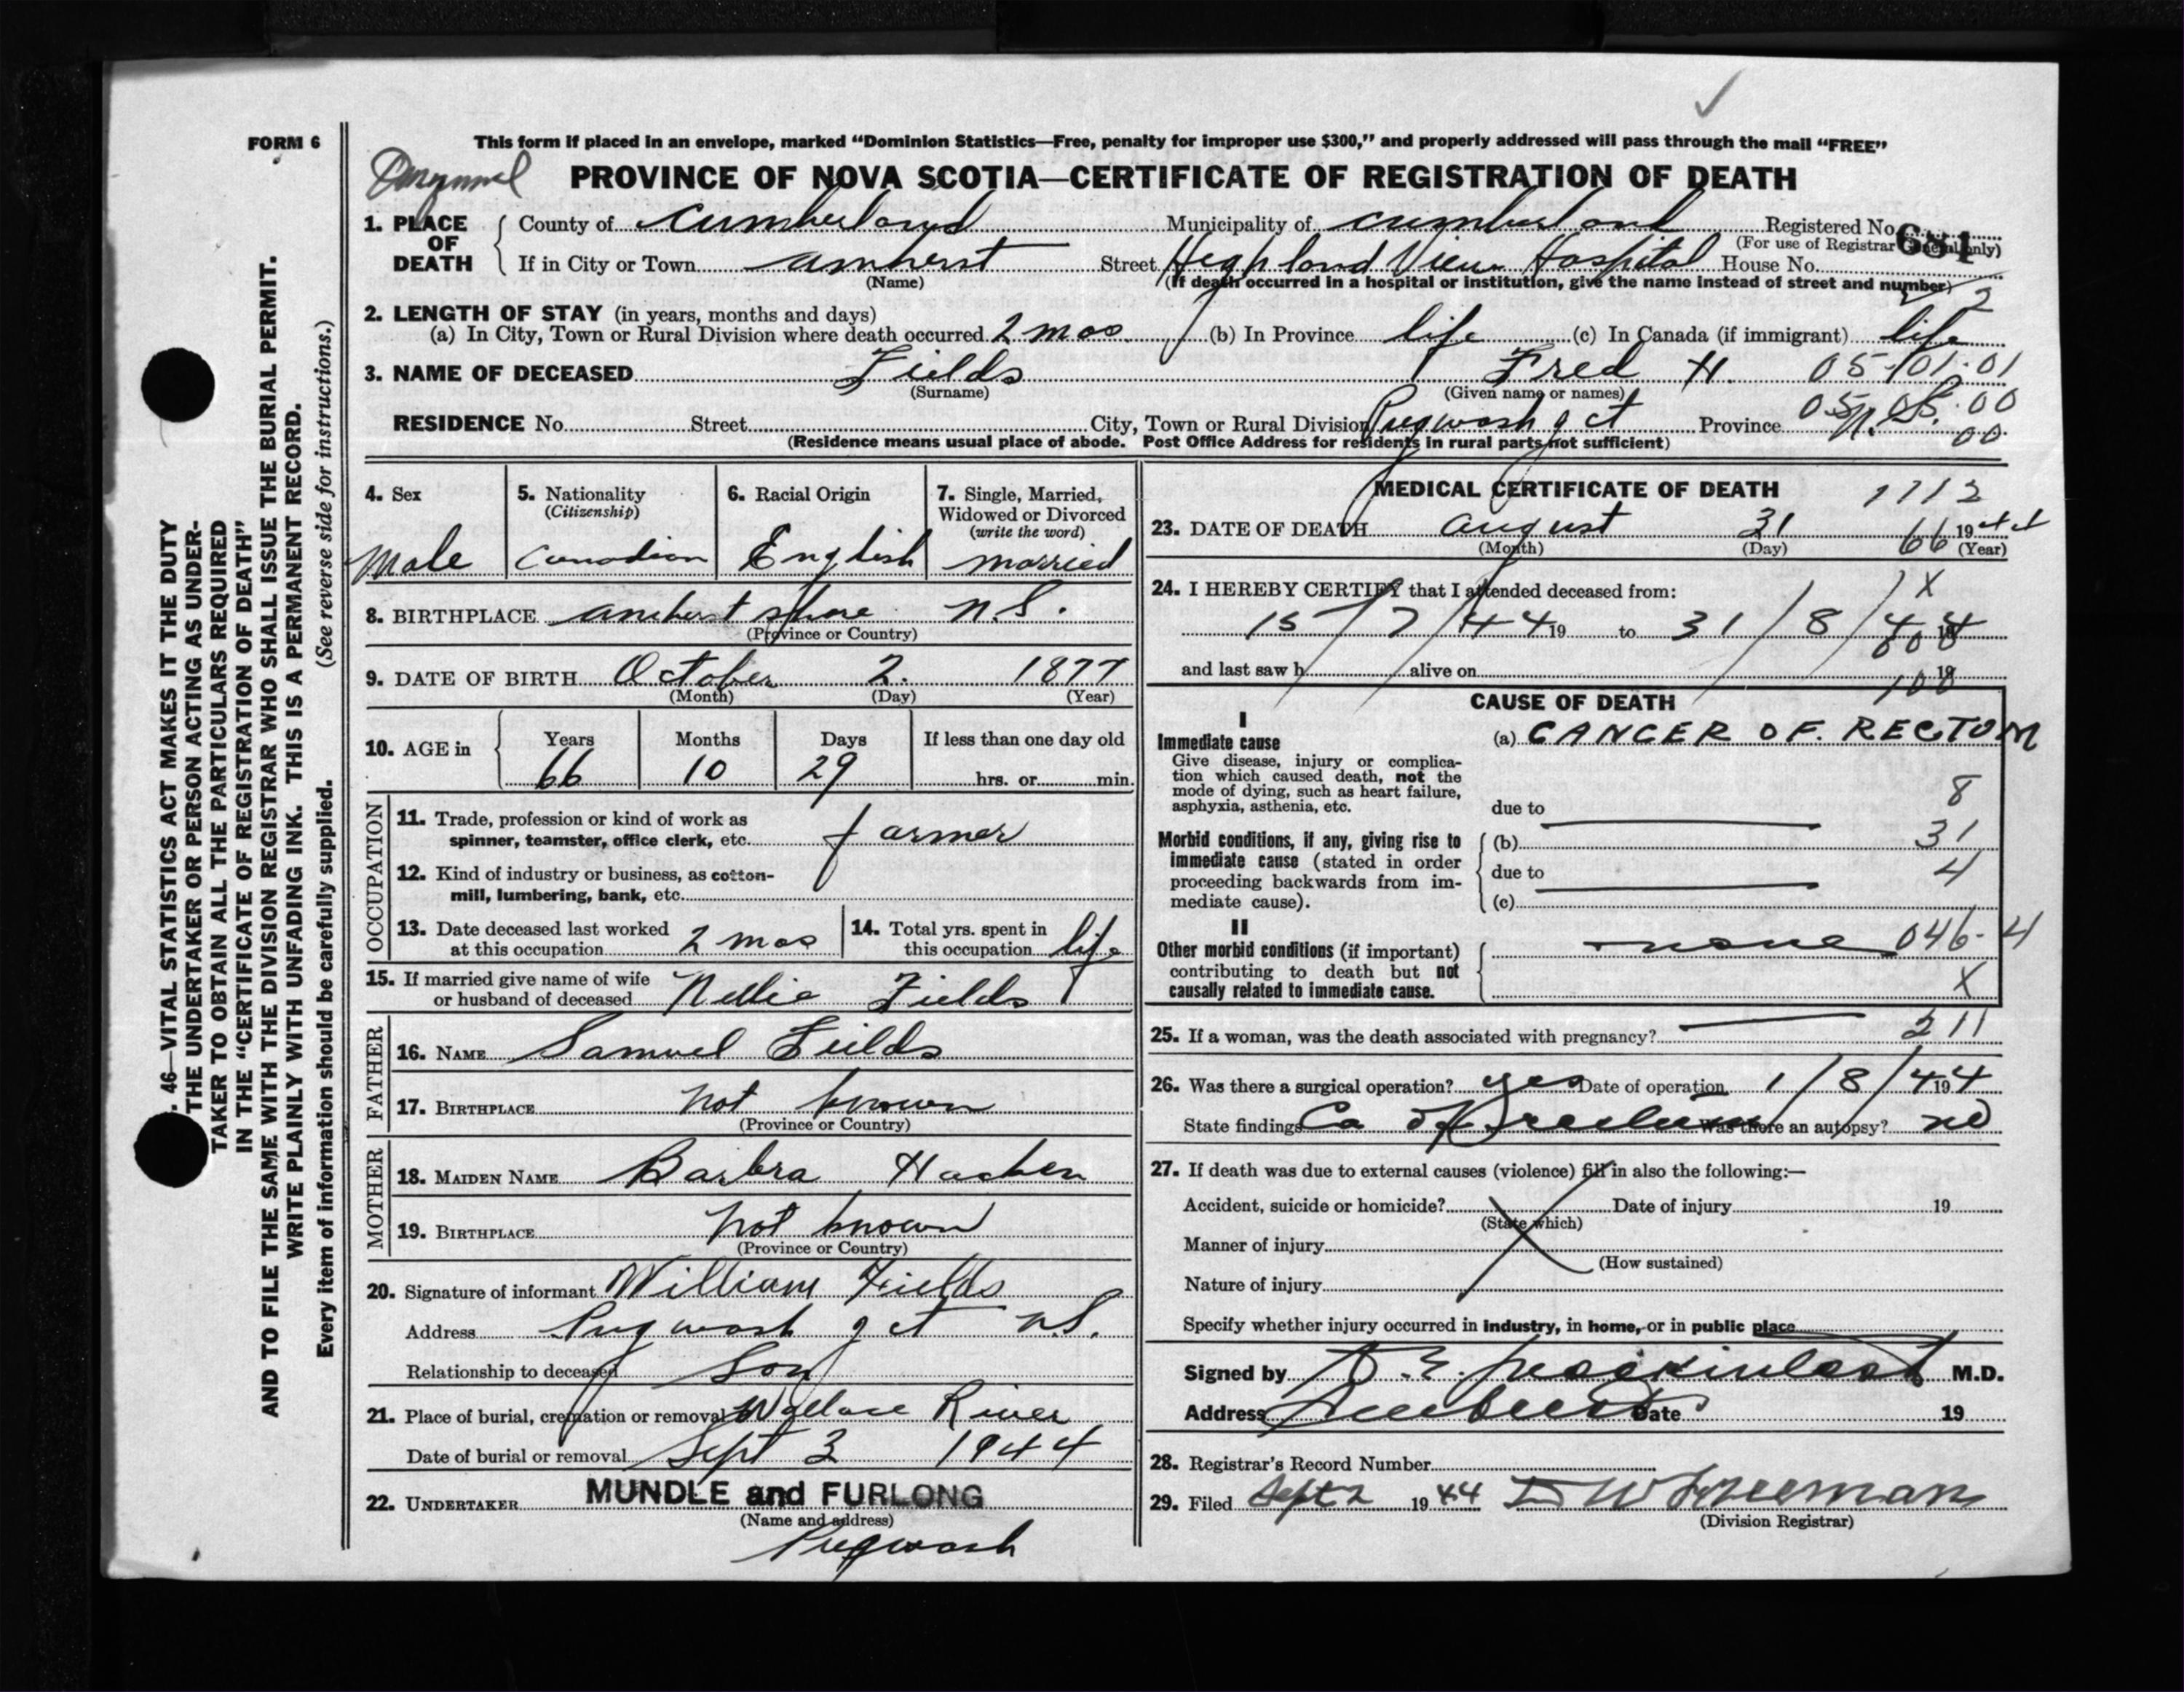 FORM 6
This form if placed in an envelope, marked “Dominion Statistics—Free, penalty for improper use $300,” and properly addressed will pass through the mail “FREE”
PROVINCE OF NOVA SCOTIA—CERTIFICATE OF REGISTRATION OF DEATH
1. PLACE OF DEATH County of Cumberland Municipality of Cumberland Registered No. 681
(For use of Registrar General only)
If in City or Town Amherst Street Highland View Hospital House No.
(Name) (If death occurred in a hospital or institution, give the name instead of street and number)
2
2. LENGTH OF STAY (in years, months and days)
(a) In City, Town or Rural Division where death occurred 2 mos (b) In Province life (c) In Canada (if immigrant) life
3. NAME OF DECEASED Fields Fred H. 05-01.01
(Surname) (Given name or names)
RESIDENCE No. Street City, Town or Rural Division Pugwash Jct Province N.S. 05.05.00
00
(Residence means usual place of abode. Post Office Address for residents in rural parts not sufficient)
4. Sex
Male
5. Nationality
(Citizenship)
Canadian
6. Racial Origin
English
7. Single, Married, Widowed or Divorced
(write the word)
married
8. BIRTHPLACE Amherst Shore N.S.
(Province or Country)
9. DATE OF BIRTH October 2. 1877
(Month) (Day) (Year)
10. AGE in Years Months Days If less than one day old
66 10 29 hrs. or min.
OCCUPATION
11. Trade, profession or kind of work as
spinner, teamster, office clerk, etc. farmer
12. Kind of industry or business, as cotton-
mill, lumbering, bank, etc.
13. Date deceased last worked
at this occupation 2 mos
14. Total yrs. spent in
this occupation life
15. If married give name of wife
or husband of deceased Nellie Fields
FATHER
16. NAME Samuel Fields
17. BIRTHPLACE not known
(Province or Country)
MOTHER
18. MAIDEN NAME Barbra
19. BIRTHPLACE not known
(Province or Country)
20. Signature of informant William Fields
Address Pugwash Jct N.S.
Relationship to deceased Son
21. Place of burial, cremation or removal Wallace River
Date of burial or removal Sept 3 1944
22. UNDERTAKER MUNDLE and FURLONG
(Name and address)
Pugwash
MEDICAL CERTIFICATE OF DEATH 1712
23. DATE OF DEATH August 31 1944
(Month) (Day) (Year)
66
24. I HEREBY CERTIFY that I attended deceased from:
X
15/7/44 19 to 31/8/44 19
and last saw h alive on 19
CAUSE OF DEATH
I
Immediate cause (a) CANCER OF RECTUM
Give disease, injury or complica-
tion which caused death, not the
mode of dying, such as heart failure,
asphyxia, asthenia, etc. due to 8
Morbid conditions, if any, giving rise to (b) 31
immediate cause (stated in order due to 4
proceeding backwards from im-
mediate cause). (c)
II
Other morbid conditions (if important) none 046-4
contributing to death but not
causally related to immediate cause. X
25. If a woman, was the death associated with pregnancy? 211
26. Was there a surgical operation? yes Date of operation 1/8/44 19
State findings Ca of rectum Was there an autopsy? no
27. If death was due to external causes (violence) fill in also the following:—
Accident, suicide or homicide? Date of injury 19
(State which)
Manner of injury
(How sustained)
Nature of injury
Specify whether injury occurred in industry, in home, or in public place
Signed by M.D.
Address Amherst Date 19
28. Registrar's Record Number
29. Filed Sept 2 1944
(Division Registrar)
. 46—VITAL STATISTICS ACT MAKES IT THE DUTY
THE UNDERTAKER OR PERSON ACTING AS UNDER-
TAKER TO OBTAIN ALL THE PARTICULARS REQUIRED
IN THE “CERTIFICATE OF REGISTRATION OF DEATH”
AND TO FILE THE SAME WITH THE DIVISION REGISTRAR WHO SHALL ISSUE THE BURIAL PERMIT.
WRITE PLAINLY WITH UNFADING INK. THIS IS A PERMANENT RECORD.
Every item of information should be carefully supplied. (See reverse side for instructions.)